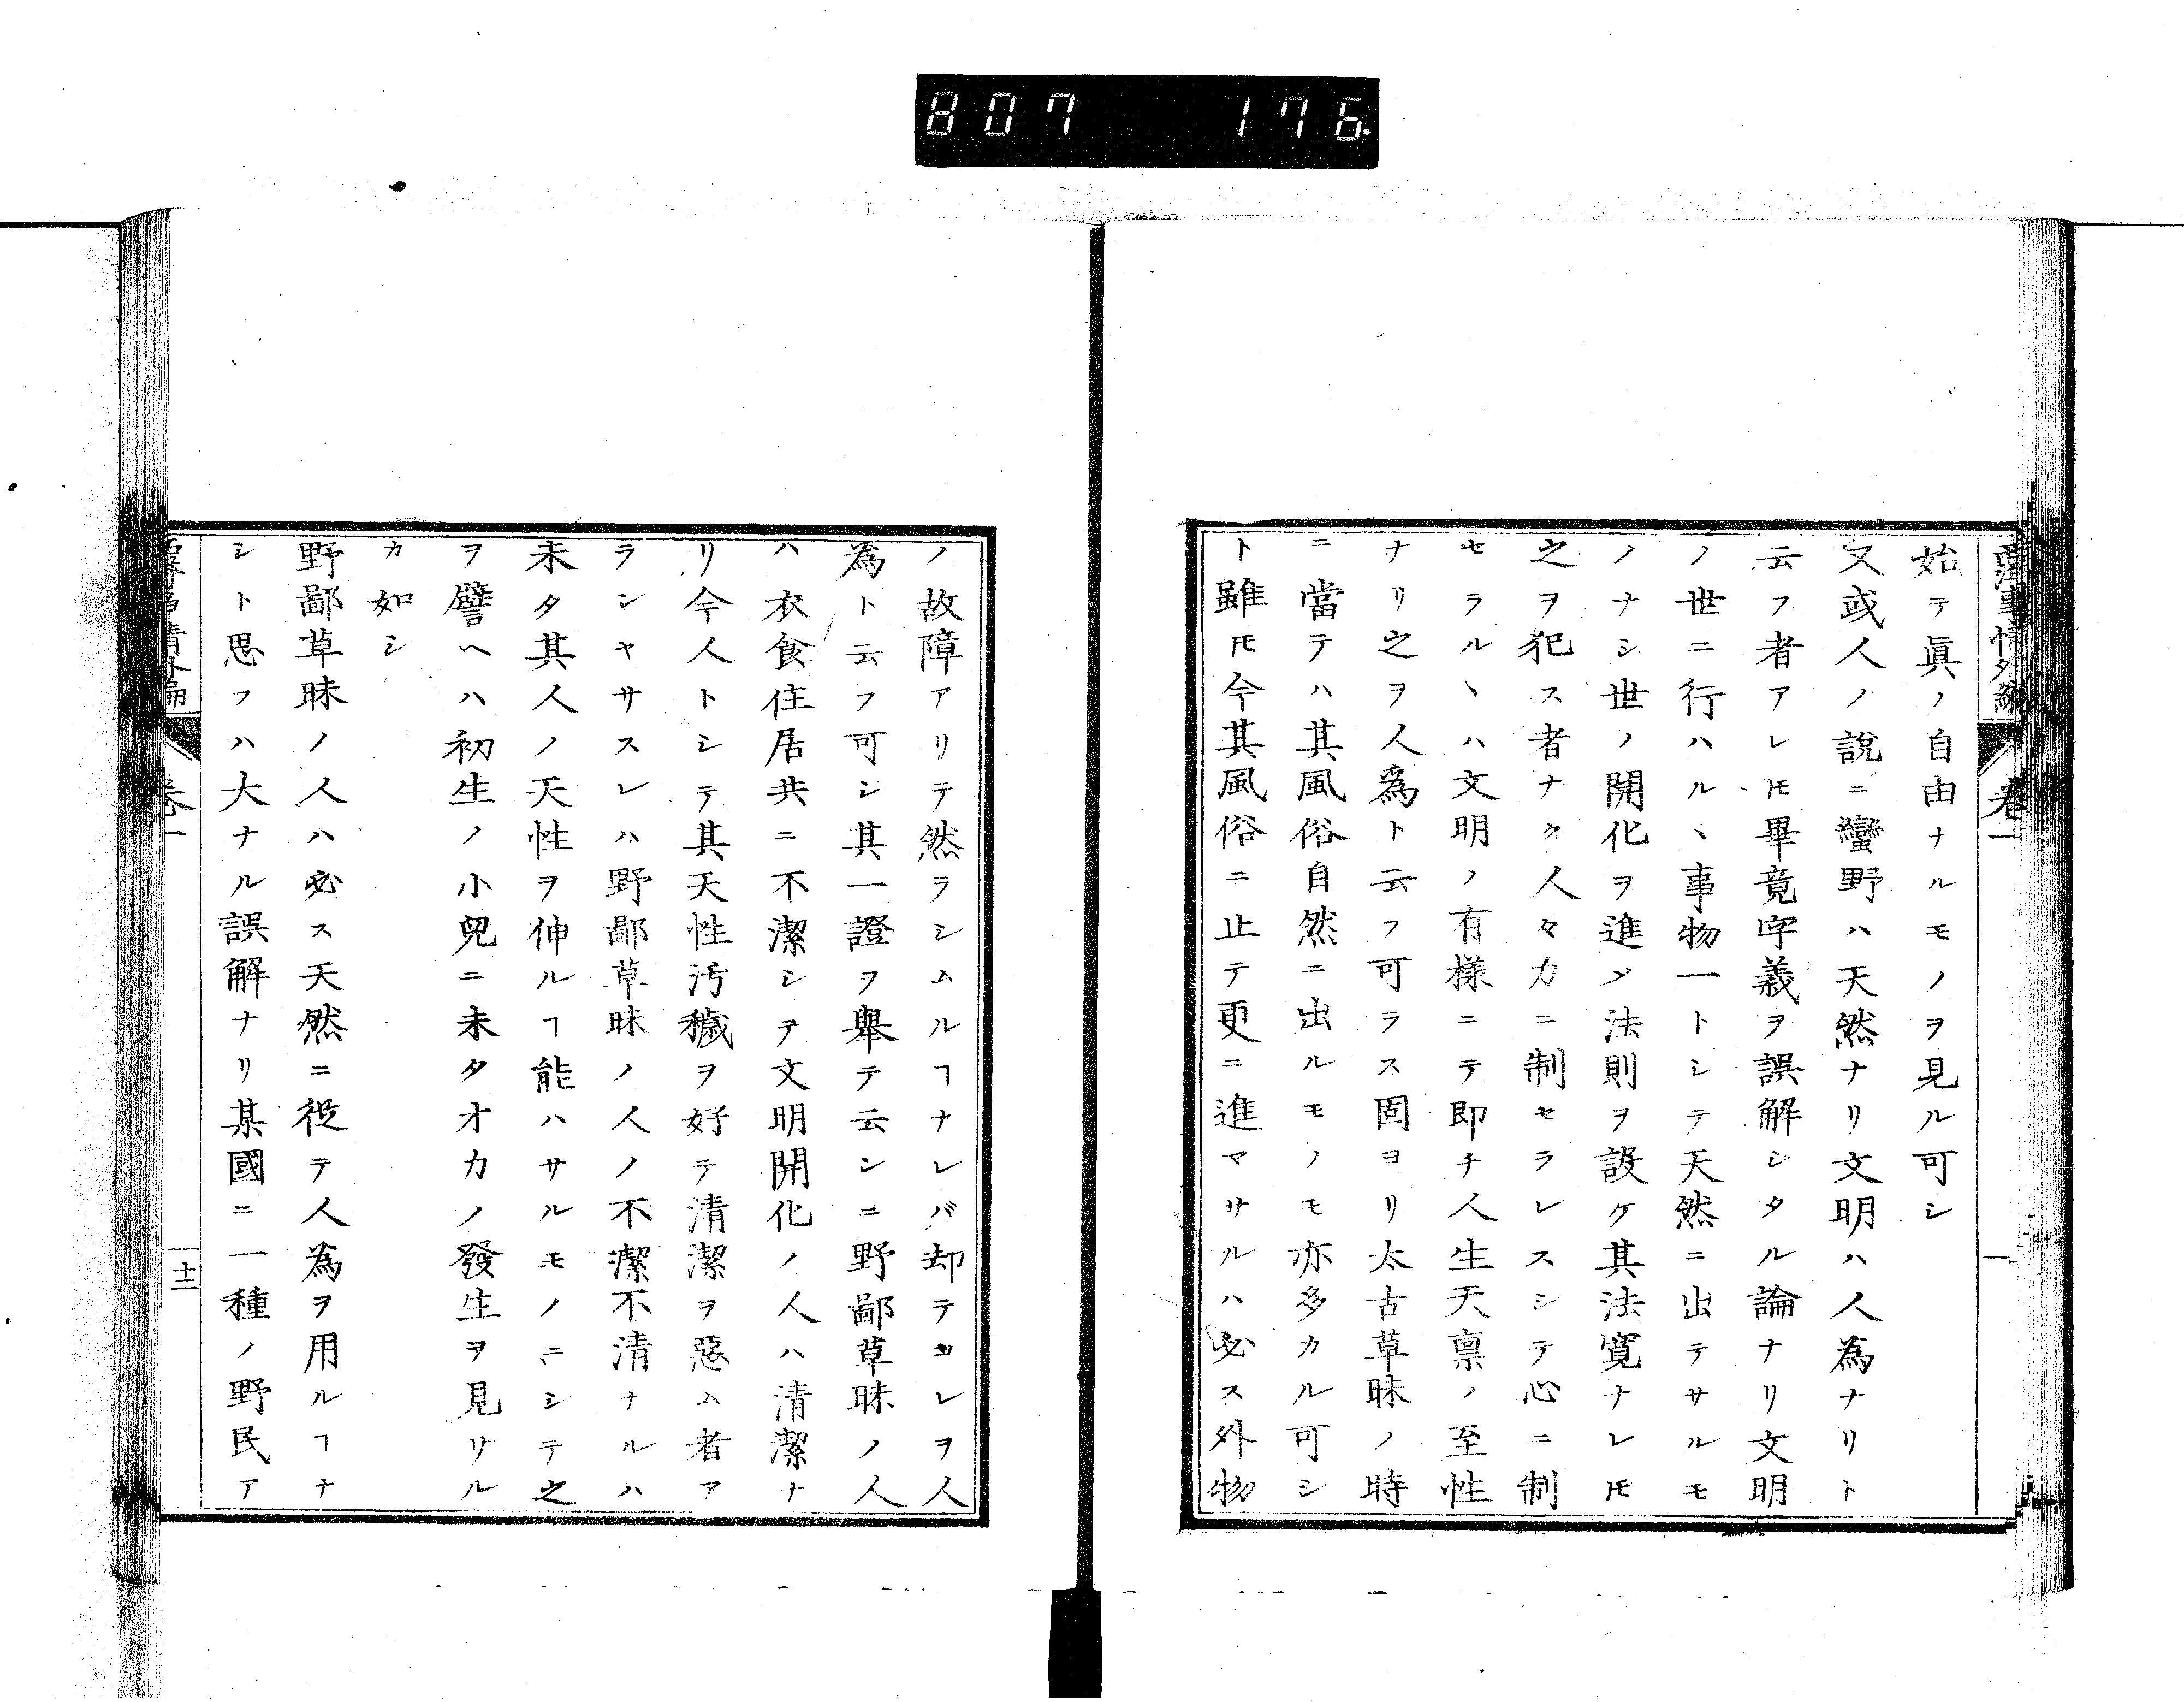 807 176
西洋事情外編 卷一
始テ眞ノ自由ナルモノヲ見ル可シ
又或人ノ說ニ蠻野ハ天然ナリ文明ハ人為ナリト
云フ者アレ𪜈畢竟字義ヲ誤解シタル論ナリ文明
ノ世ニ行ハルヽ事物一トシテ天然ニ出テサルモ
ノナシ世ノ開化ヲ進メ法則ヲ設ケ其法寛ナレ𪜈
之ヲ犯ス者ナク人々力ニ制セラレスシテ心ニ制
セラルヽハ文明ノ有樣ニテ即チ人生天禀ノ至性
ナリ之ヲ人爲ト云フ可ラス固ヨリ太古草昧ノ時
ニ當テハ其風俗自然ニ出ルモノモ亦多カル可シ
ト雖𪜈今其風俗ニ止テ更ニ進マサルハ必ス外物
ノ故障アリテ然ラシムルヿナレバ却テコレヲ人
為ト云フ可シ其一證ヲ舉テ云ンニ野鄙草昧ノ人
ハ衣食住居共ニ不潔シテ文明開化ノ人ハ清潔ナ
リ今人トシテ其天性汚穢ヲ好テ清潔ヲ惡ム者ア
ランヤサスレハ野鄙草昧ノ人ノ不潔不清ナルハ
未タ其人ノ天性ヲ伸ルヿ能ハサルモノニシテ之
ヲ譬ヘハ初生ノ小兒ニ未タオカノ發生ヲ見サル
カ如シ
野鄙草昧ノ人ハ必ス天然ニ從テ人為ヲ用ルヿナ
シト思フハ大ナル誤解ナリ某國ニ一種ノ野民ア
西洋事情外編 卷一 十一